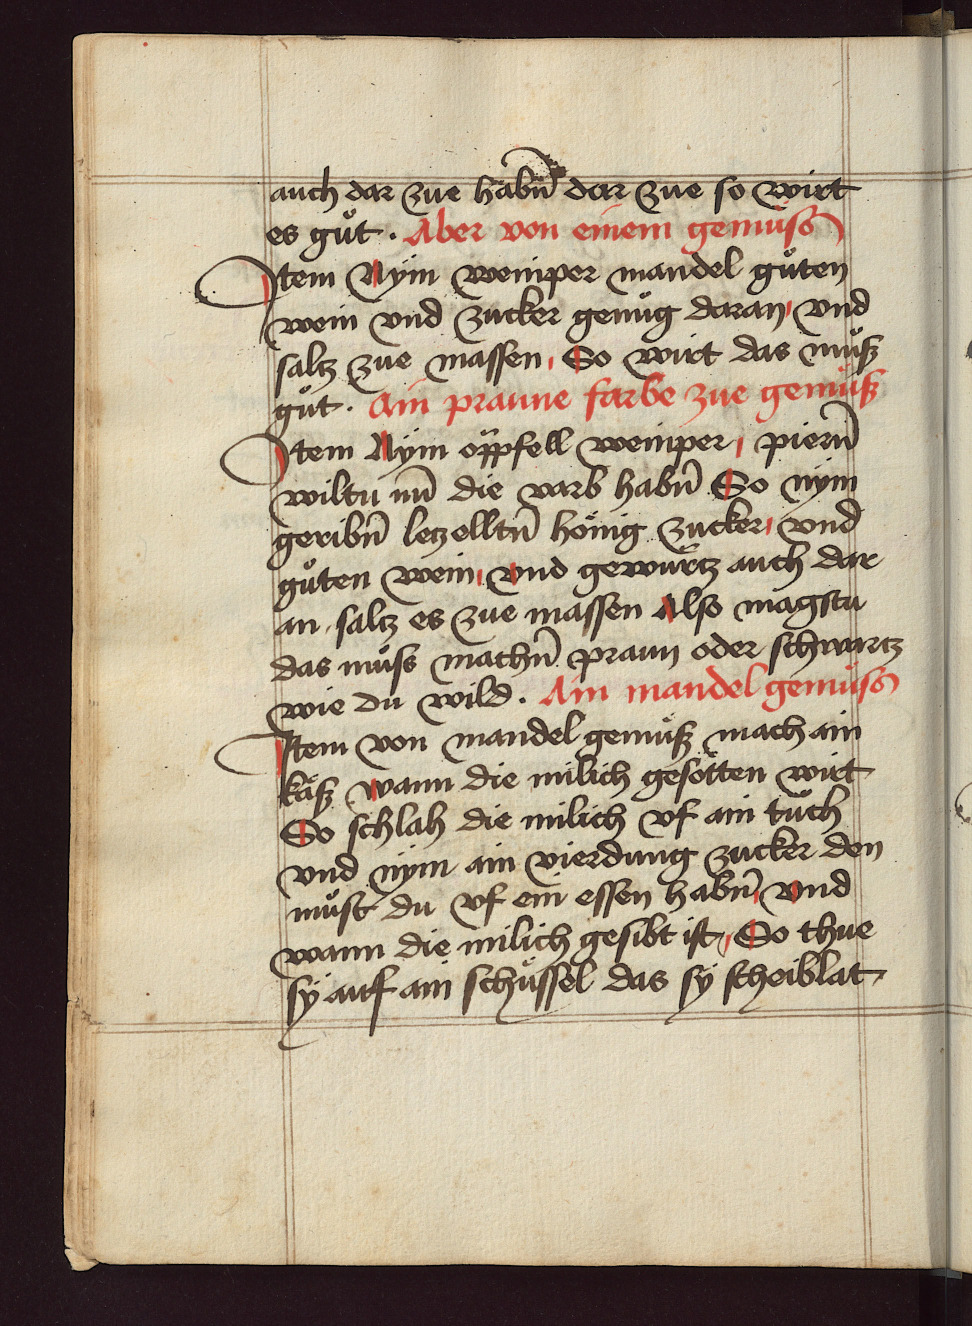 auch dar zue habn̄ dar zue so wirt
es gůt . Aber von einem gemüss
Item Nym weinper mandel gůten
wein vnd zucker genůg daran vnd
saltz zue massen So wirt das můß
gůt . Ain praune farbe zue gemůß
Item Nym öppfell weinper piern̄
wiltu nū die varb habn̄ So nym
geribn̄ letzelltn̄ hönig zucker vnd
gůten wein vnd gewürtz auch dar
an saltz es zue massen Also magstu
das můss machn̄ praun oder schwartz
wie du wild . Ain mandel gemůss
Item von mandel gemůß mach ain
käß wann die milich gesotten wirt
So schlah die milich vf ain tůch
vnd nym ain vierdung zucker den
můst du vf ein essen habn̄ vnd
wann die milich gesibt ist So thue
sÿ auf ain schüssel das sÿ scheiblat